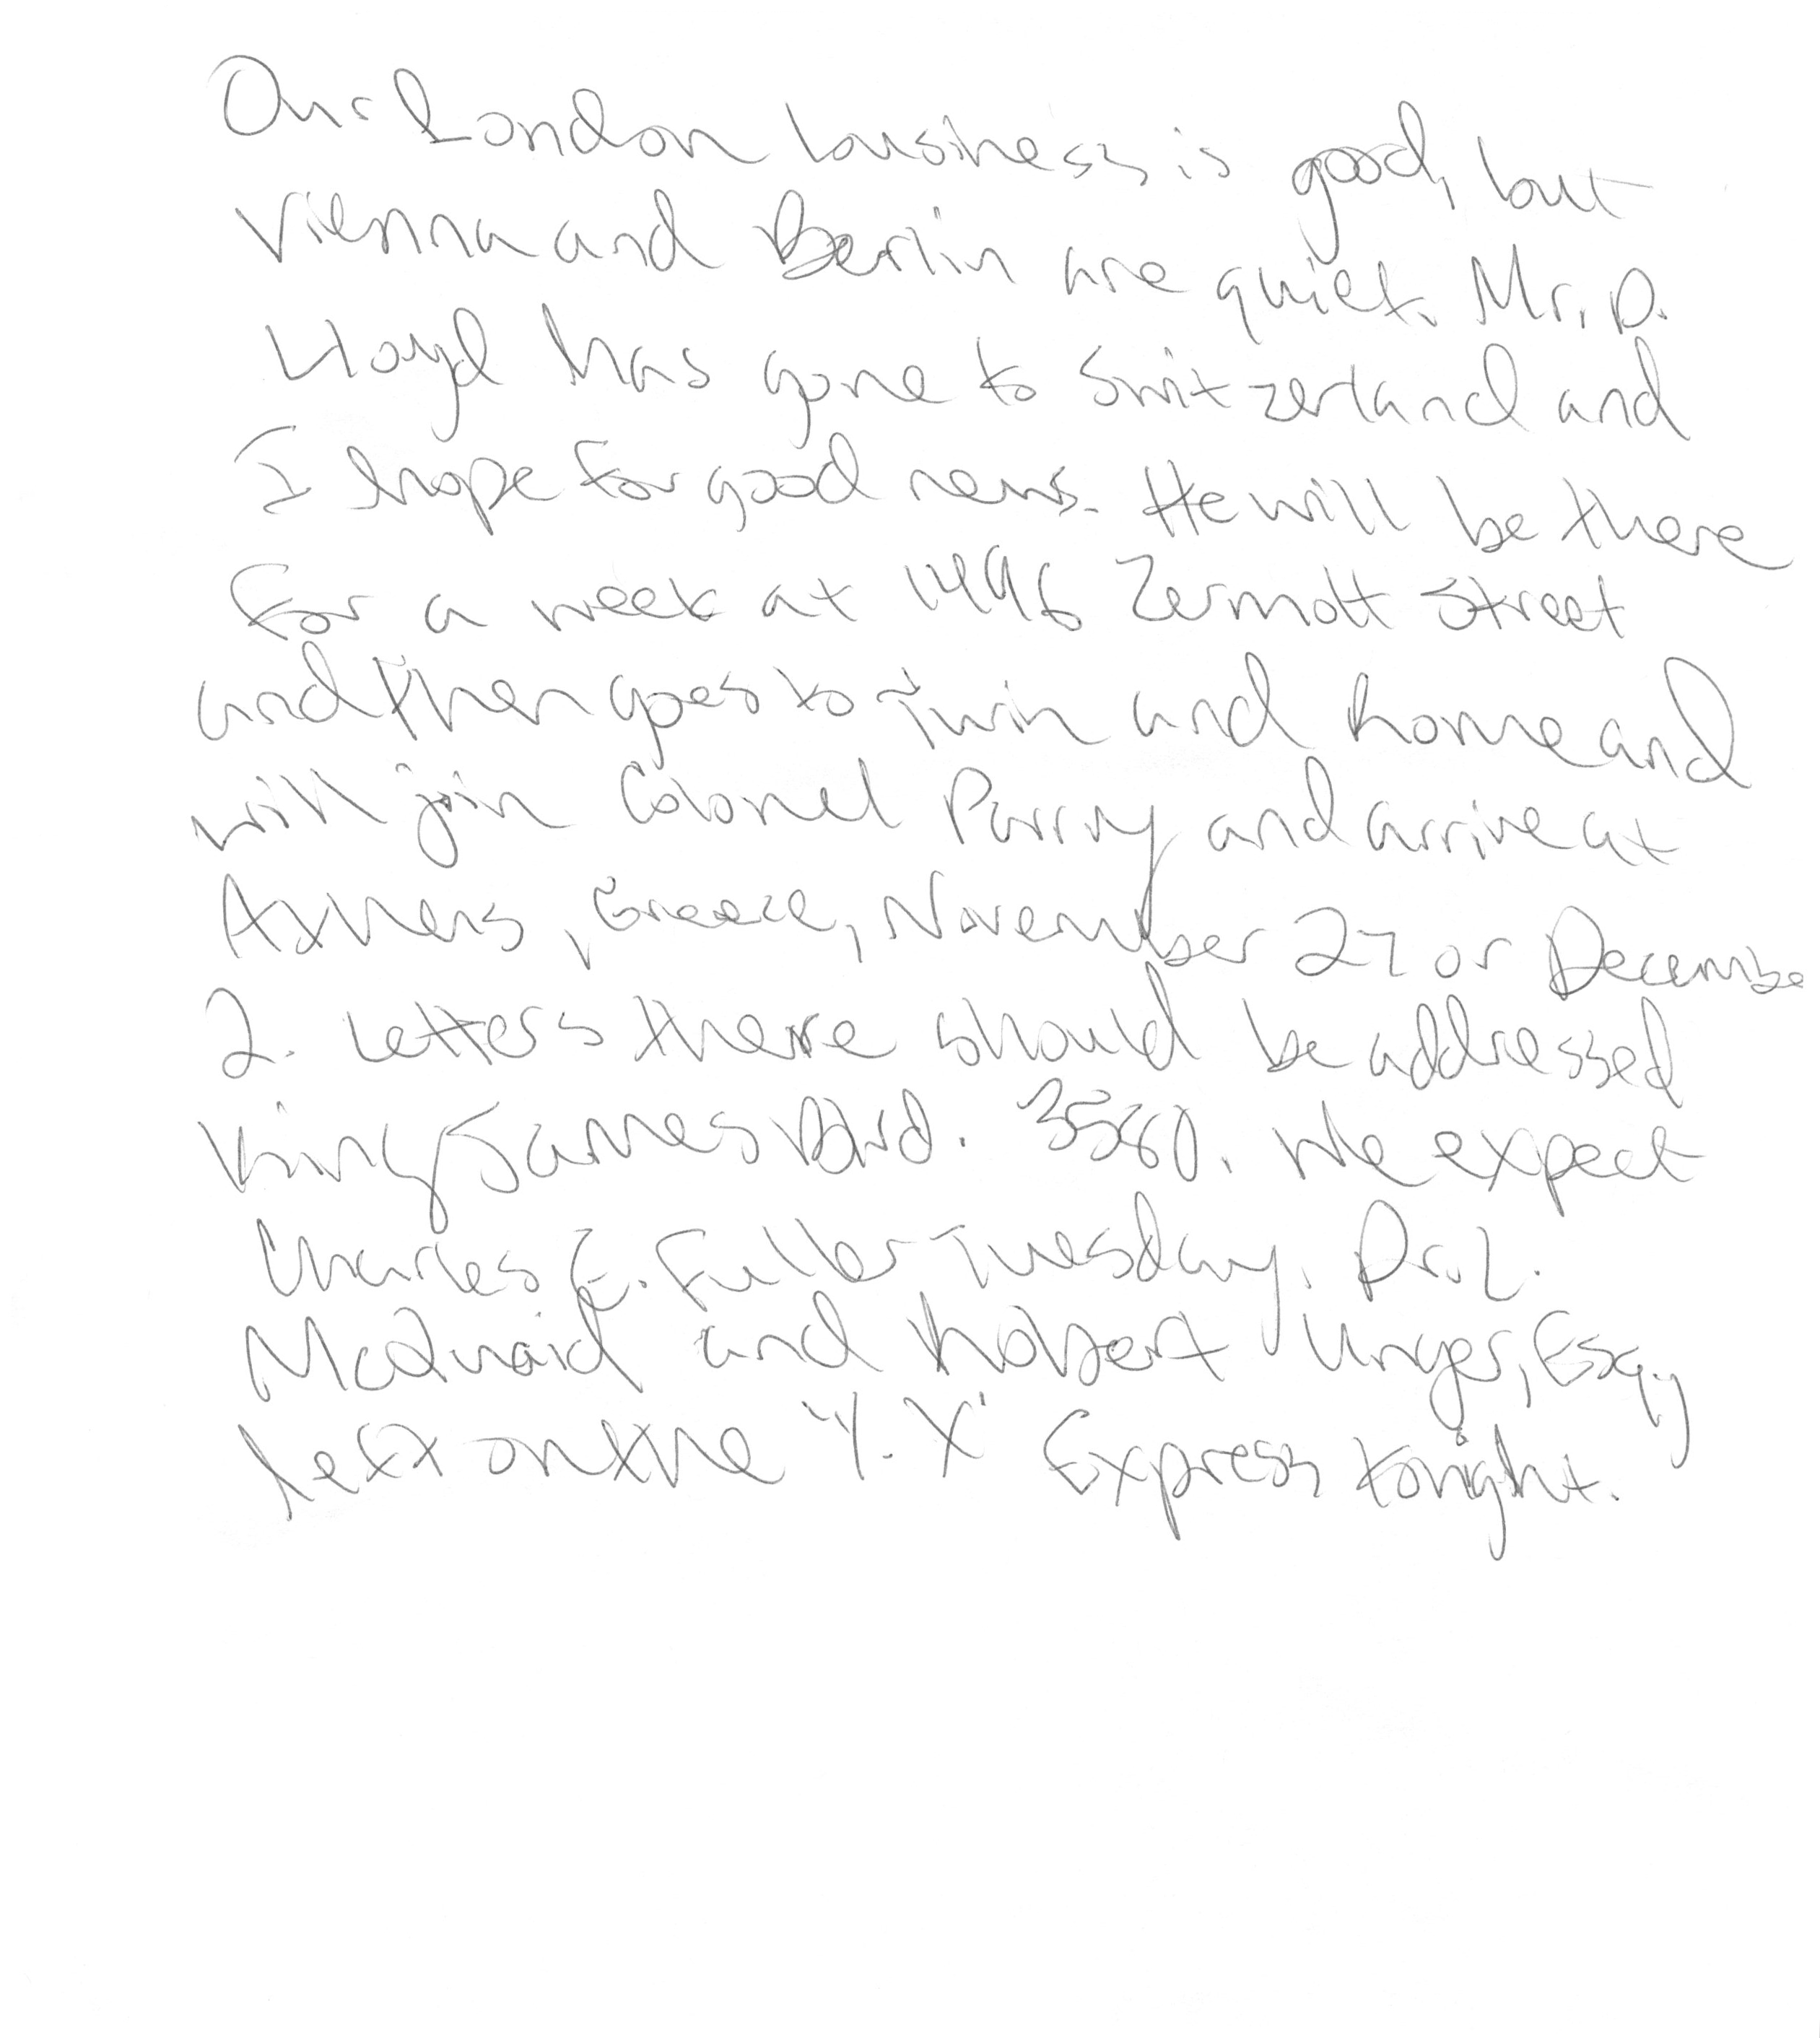 Our London business is good, but
Vienna and Berlin are quiet. Mr. D.
Lloyd has gone to Switzerland and
I hope for good news. He will be there
for a week at 1496 Zermott Street
and then goes to Turin and Rome and
will join Colonel Parry and arrive at
Athens, Greece, November 27 or December
2. Letters there should be addressed
King James Blvd. 3580. We expect
Charles E. Fuller Tuesday. Dr. L.
McQuaid and Robert Unger, Esq.,
left on the "Y.X" Express tonight.